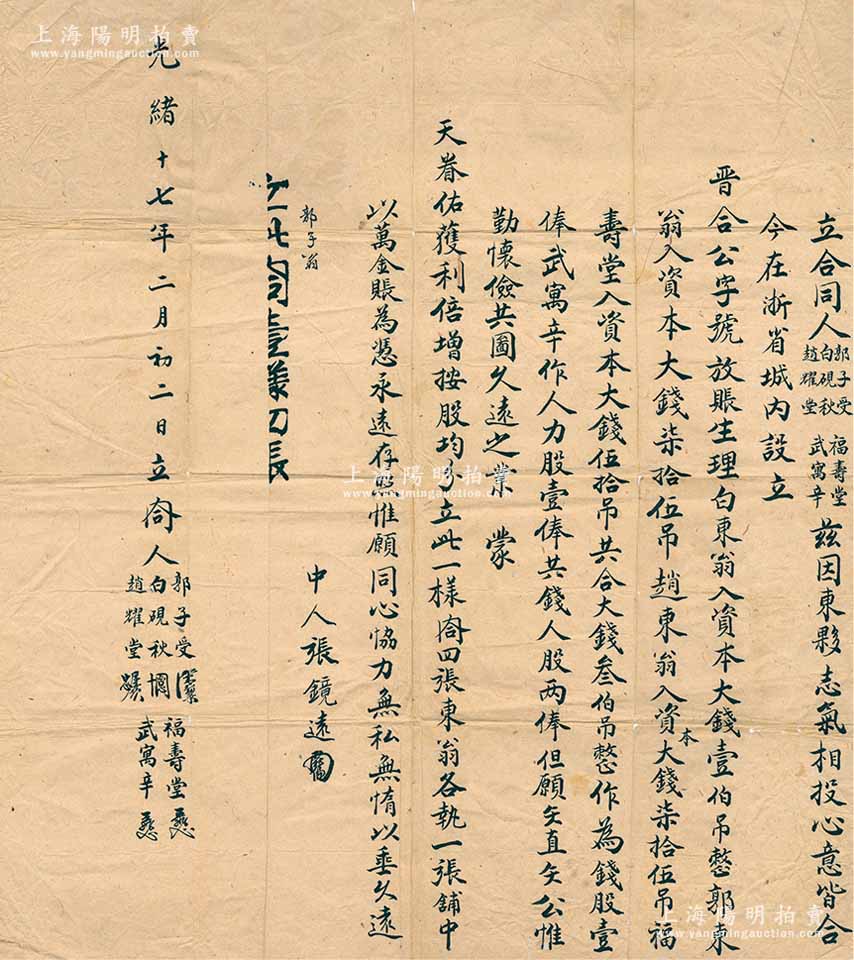 立合同人郭子受白硯秋趙耀堂福壽堂武寓辛茲因東夥志氣相投心意皆合
今在浙省城內設立
晋合公字號放賬生理白東翁入資本大錢壹伯吊整郭東
翁入資本大錢柒拾伍吊趙東翁入資本大錢柒拾伍吊福
壽堂入資本大錢伍拾吊共合大錢叁伯吊整作為錢股壹
俸武寓辛作人力股壹俸共錢人股两俸但願矢直矢公惟
勤懷儉共圖久遠之業 蒙
天眷佑獲利倍增按股均分立此一樣合同四張東翁各執一張舖中
以萬金賬為憑永遠存照惟願同心協力無私無惰以垂久遠
郭子翁
中人張鏡遠
光緒十七年二月初二日立合同人郭子受白硯秋趙耀堂福壽堂武寓辛
上海陽明拍賣
www.yangmingauction.com
上海陽明拍賣
www.yangmingauction.com
上海陽明拍賣
www.yangmingauction.com
上海陽明拍賣
www.yangmingauction.com